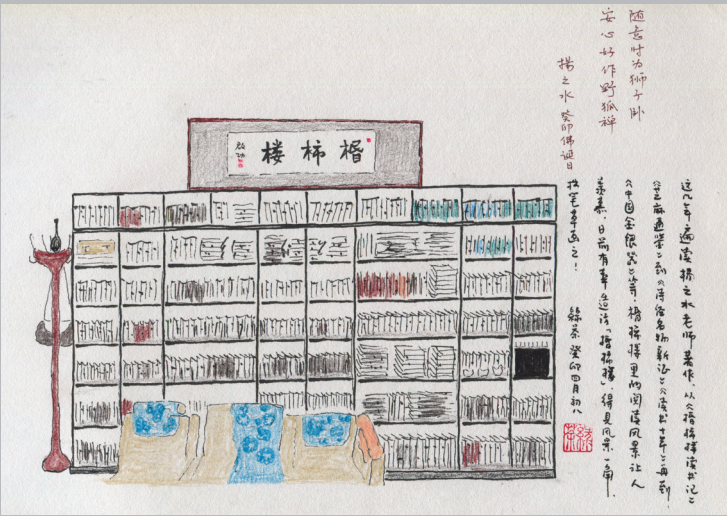 随意时为狮子卧
安心好作野狐禅
揚之水 癸卯佛诞日
棔柿楼
启功
这几年遍读揚之水老师著作，从《棔柿楼读书记》
《芝麻通鉴》到《诗经名物新证》《读书十年》再到
《中国金银器》等，棔柿楼里的阅读风景让人
羡慕，日前有幸造访“棔柿楼”，得见风景一角，
拙笔草画之！ 絲茶 癸卯四月初八